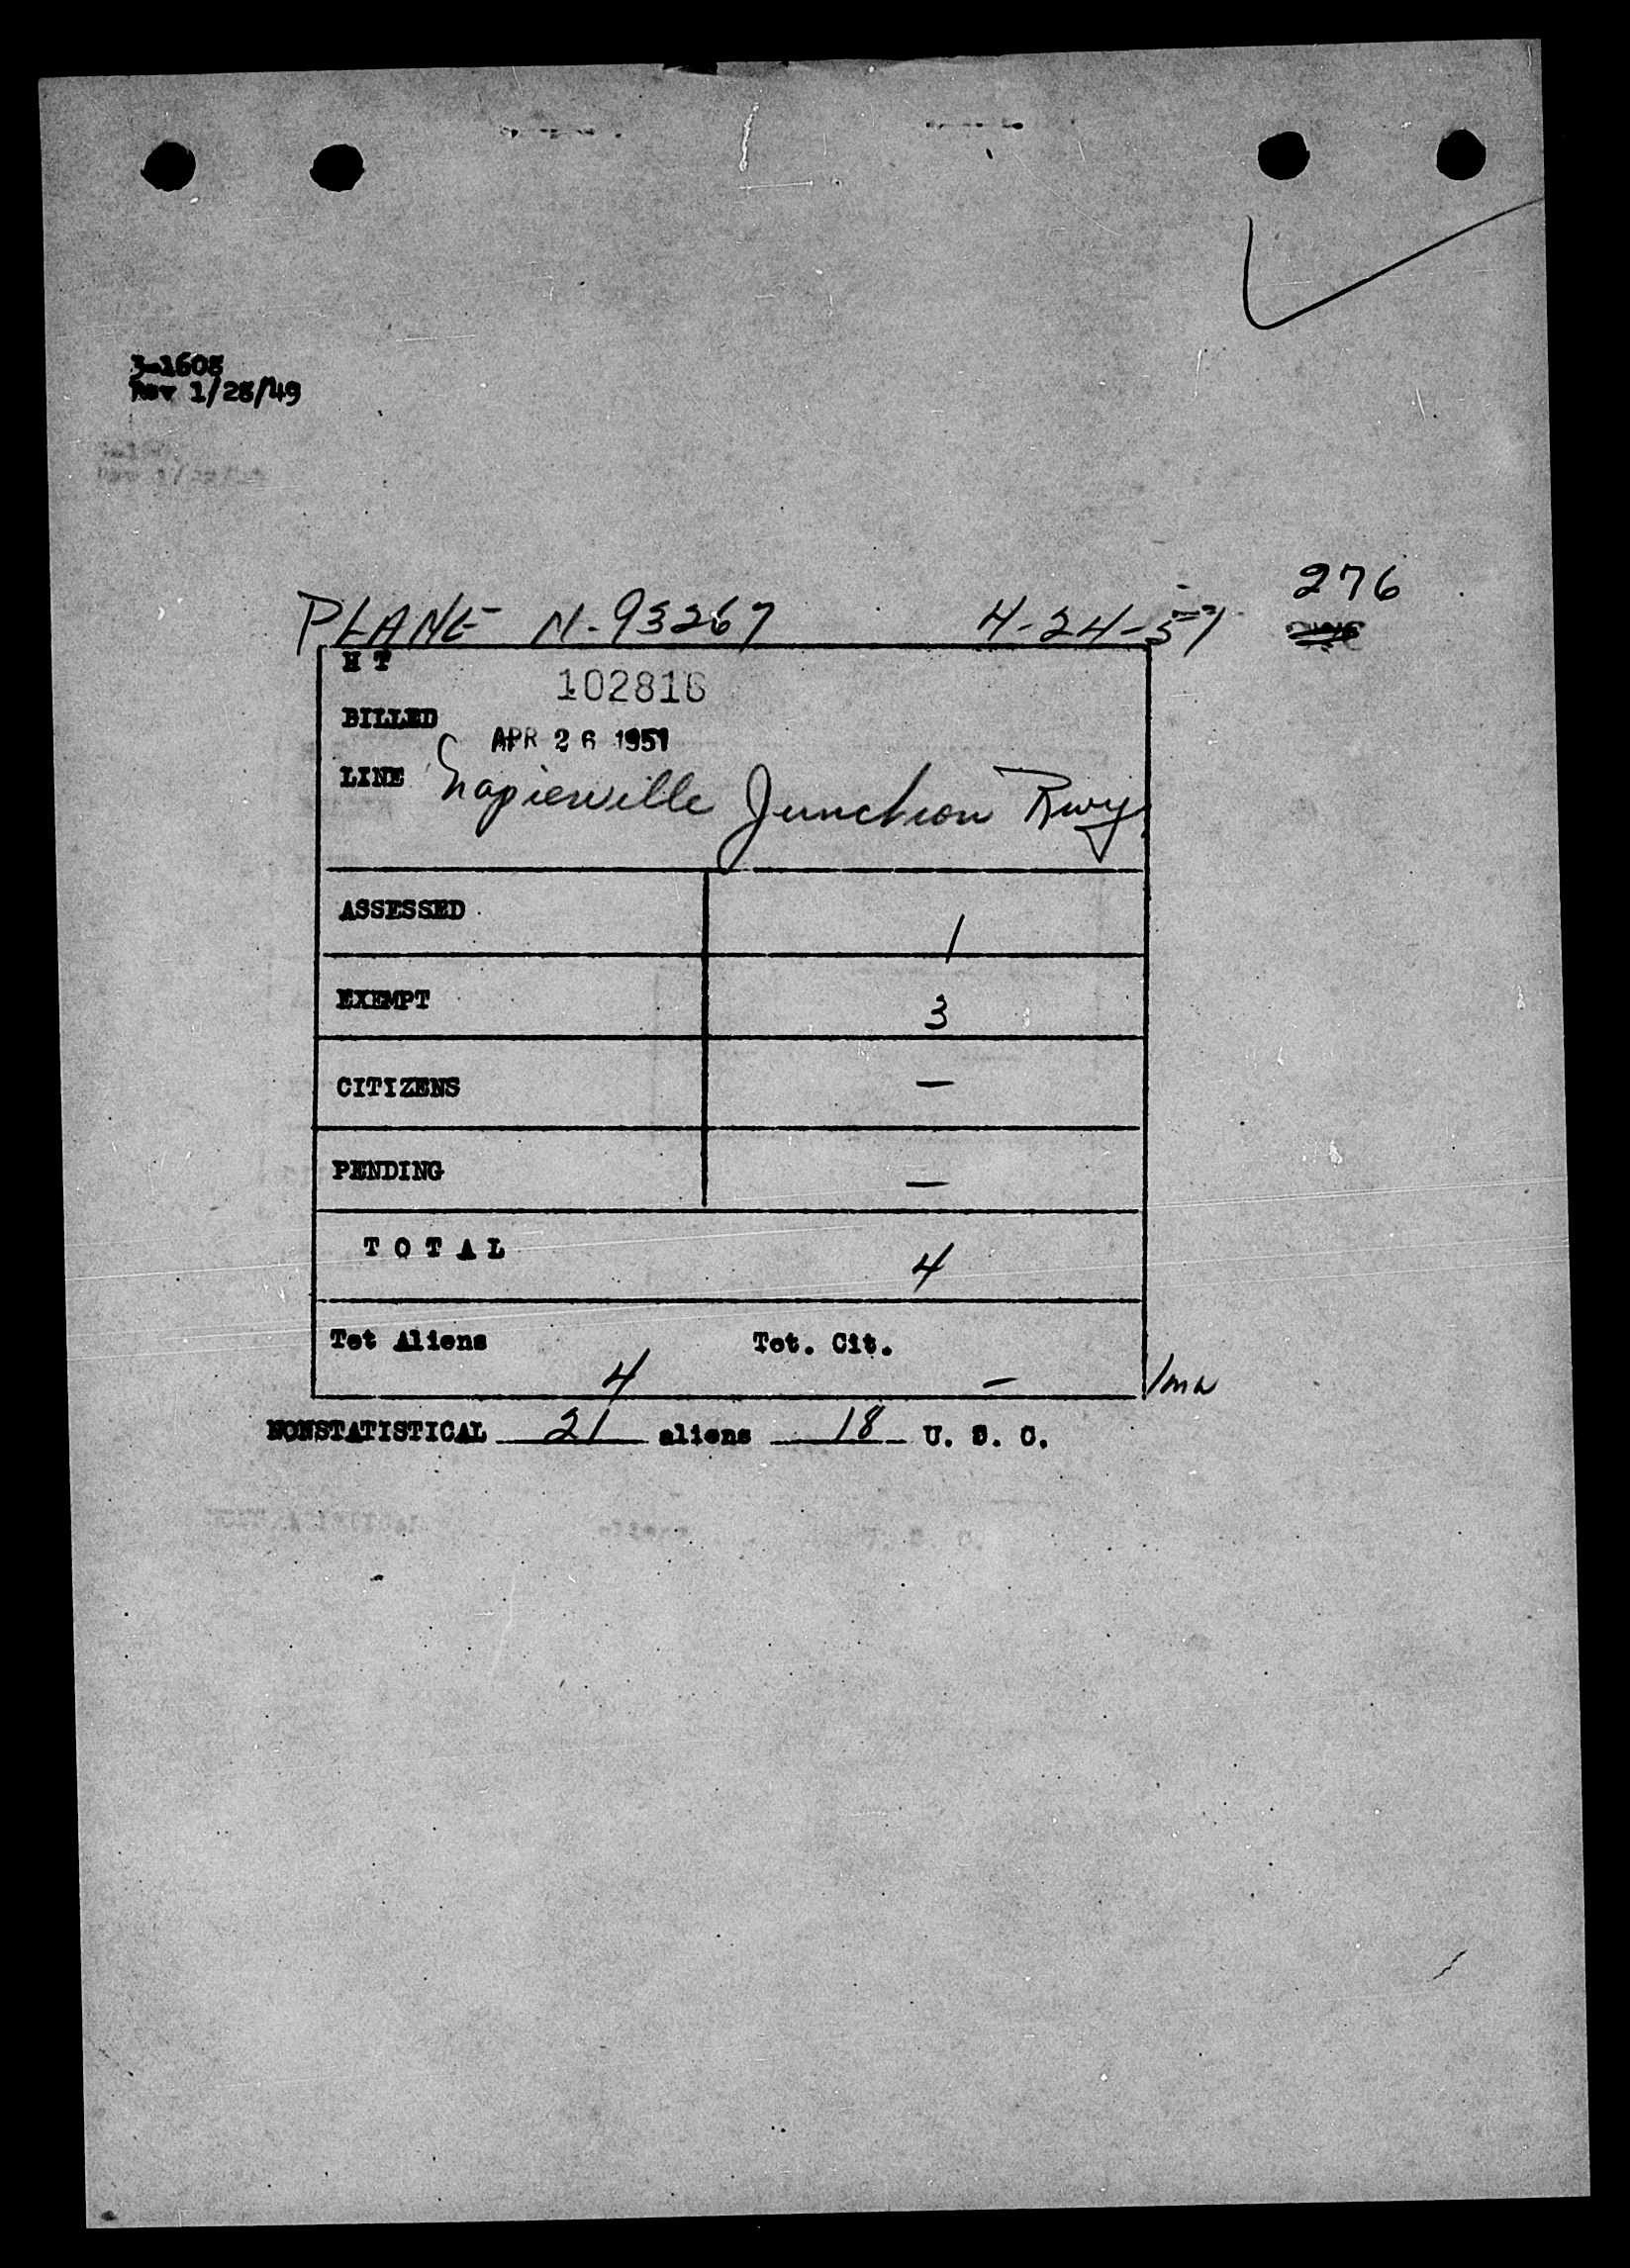 3-1608
Rev 1/28/49
276
PLANE N-93267 4-24-51
H T 102816
BILLED APR 26 1951
LINE Napierville Junction Rwy
ASSESSED 1
EXEMPT 3
CITIZENS —
PENDING —
TOTAL 4
Tot Aliens 4 Tot. Cit. —
NONSTATISTICAL 21 aliens 18 U. S. C.